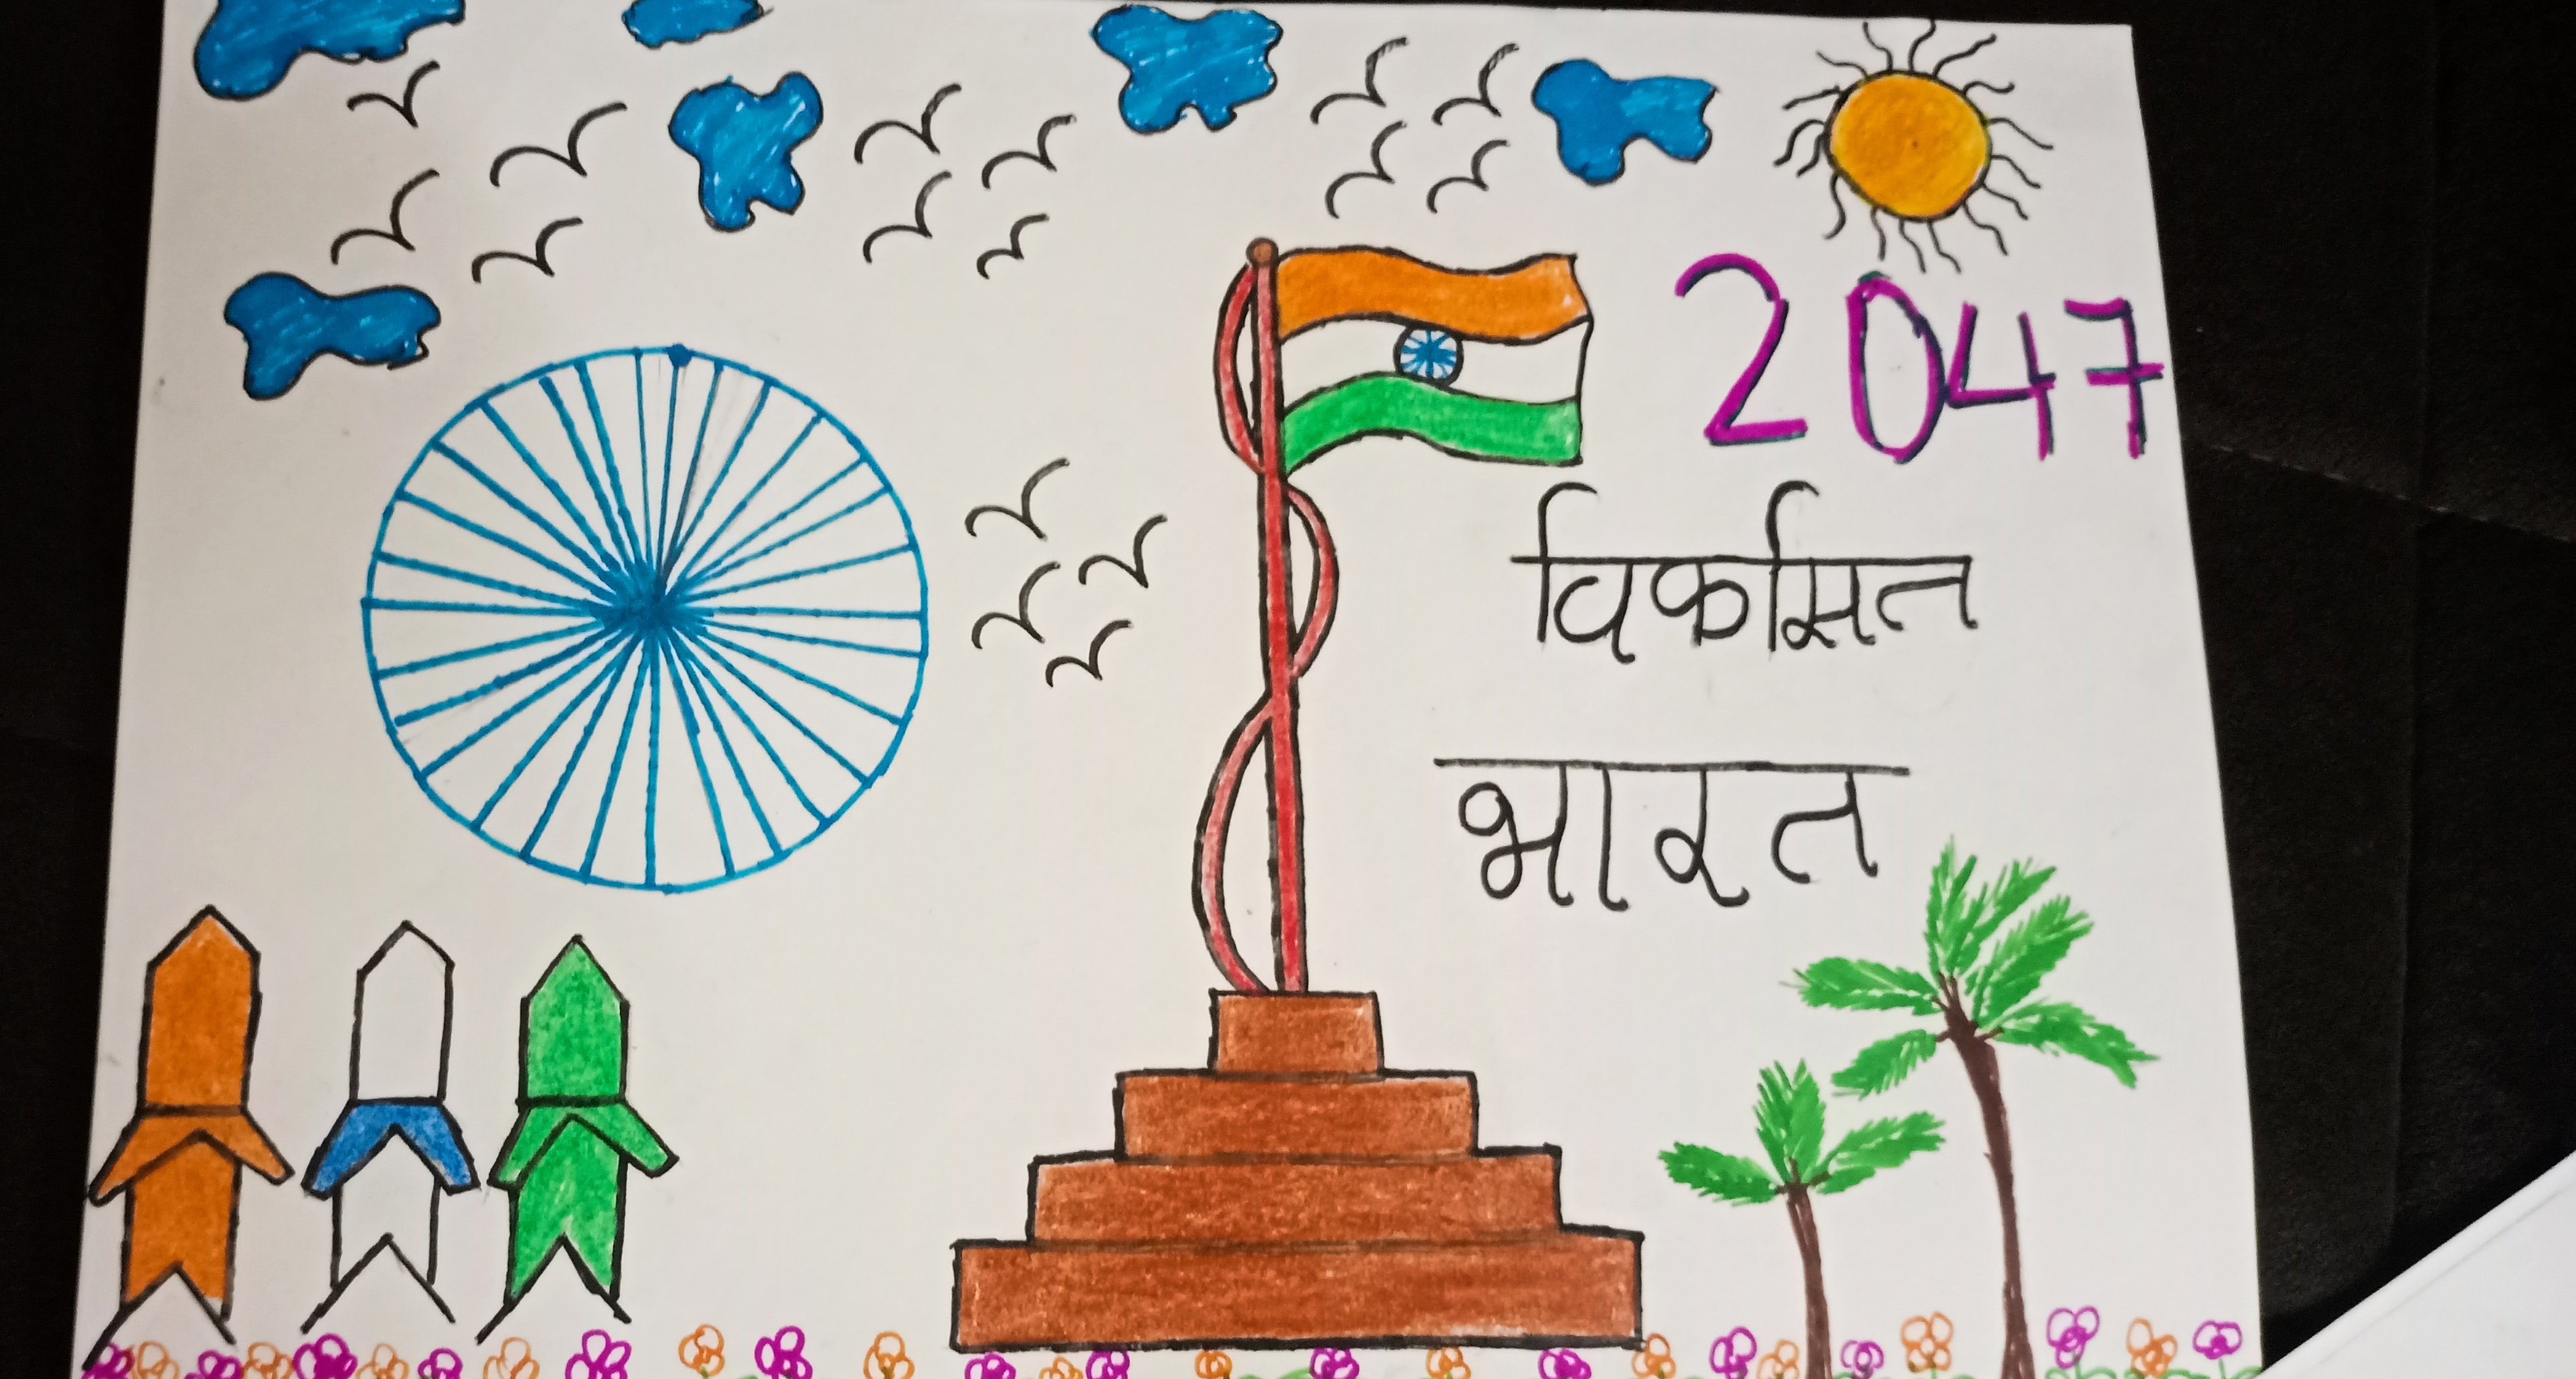 2047
विकसित
भारत